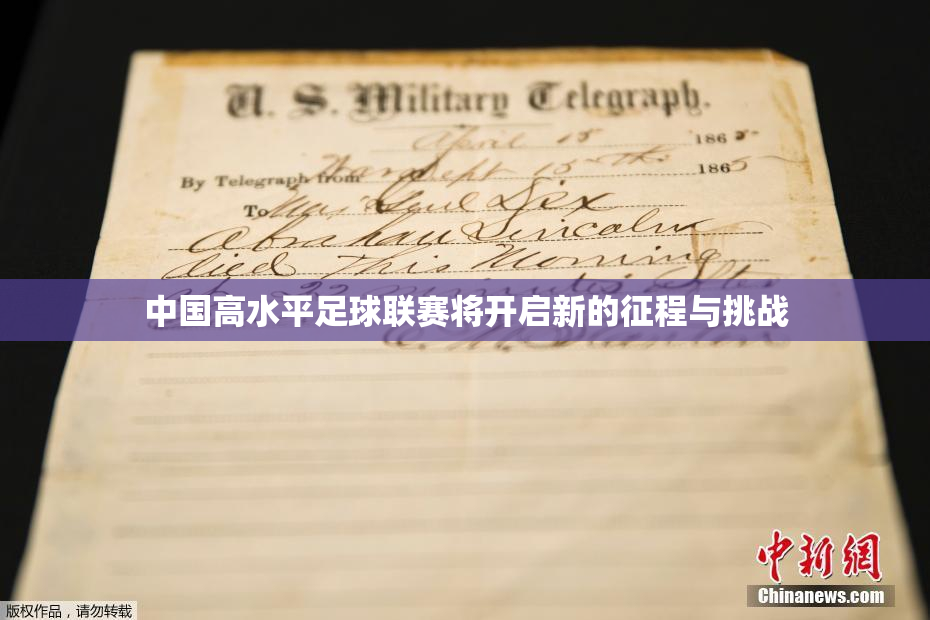 U. S. Military Telegraph.
April 15 1865
By Telegraph from War Dept 15th 1865
To Maj Genl Dix
Abraham Lincoln
died This Morning
22 minutes after
中国高水平足球联赛将开启新的征程与挑战
E. M. Stanton
中新網
Chinanews.com
版权作品，请勿转载